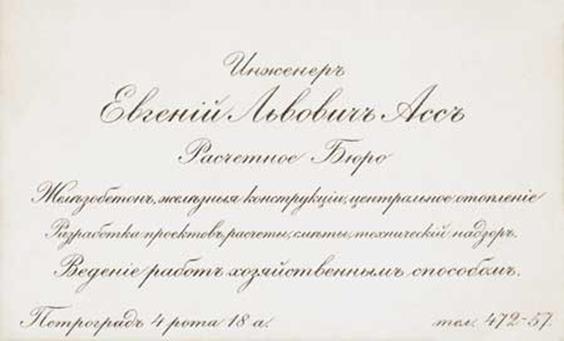 Инженеръ
Евгеній Львовичъ Ассъ
Расчетное Бюро
Желѣзобетонъ, желѣзныя конструкціи, центральное отопленіе
Разработка проектовъ, расчеты, смѣты, техническій надзоръ.
Веденіе работъ хозяйственнымъ способомъ.
Петроградъ 4 рота 18 а. тел. 472-57.